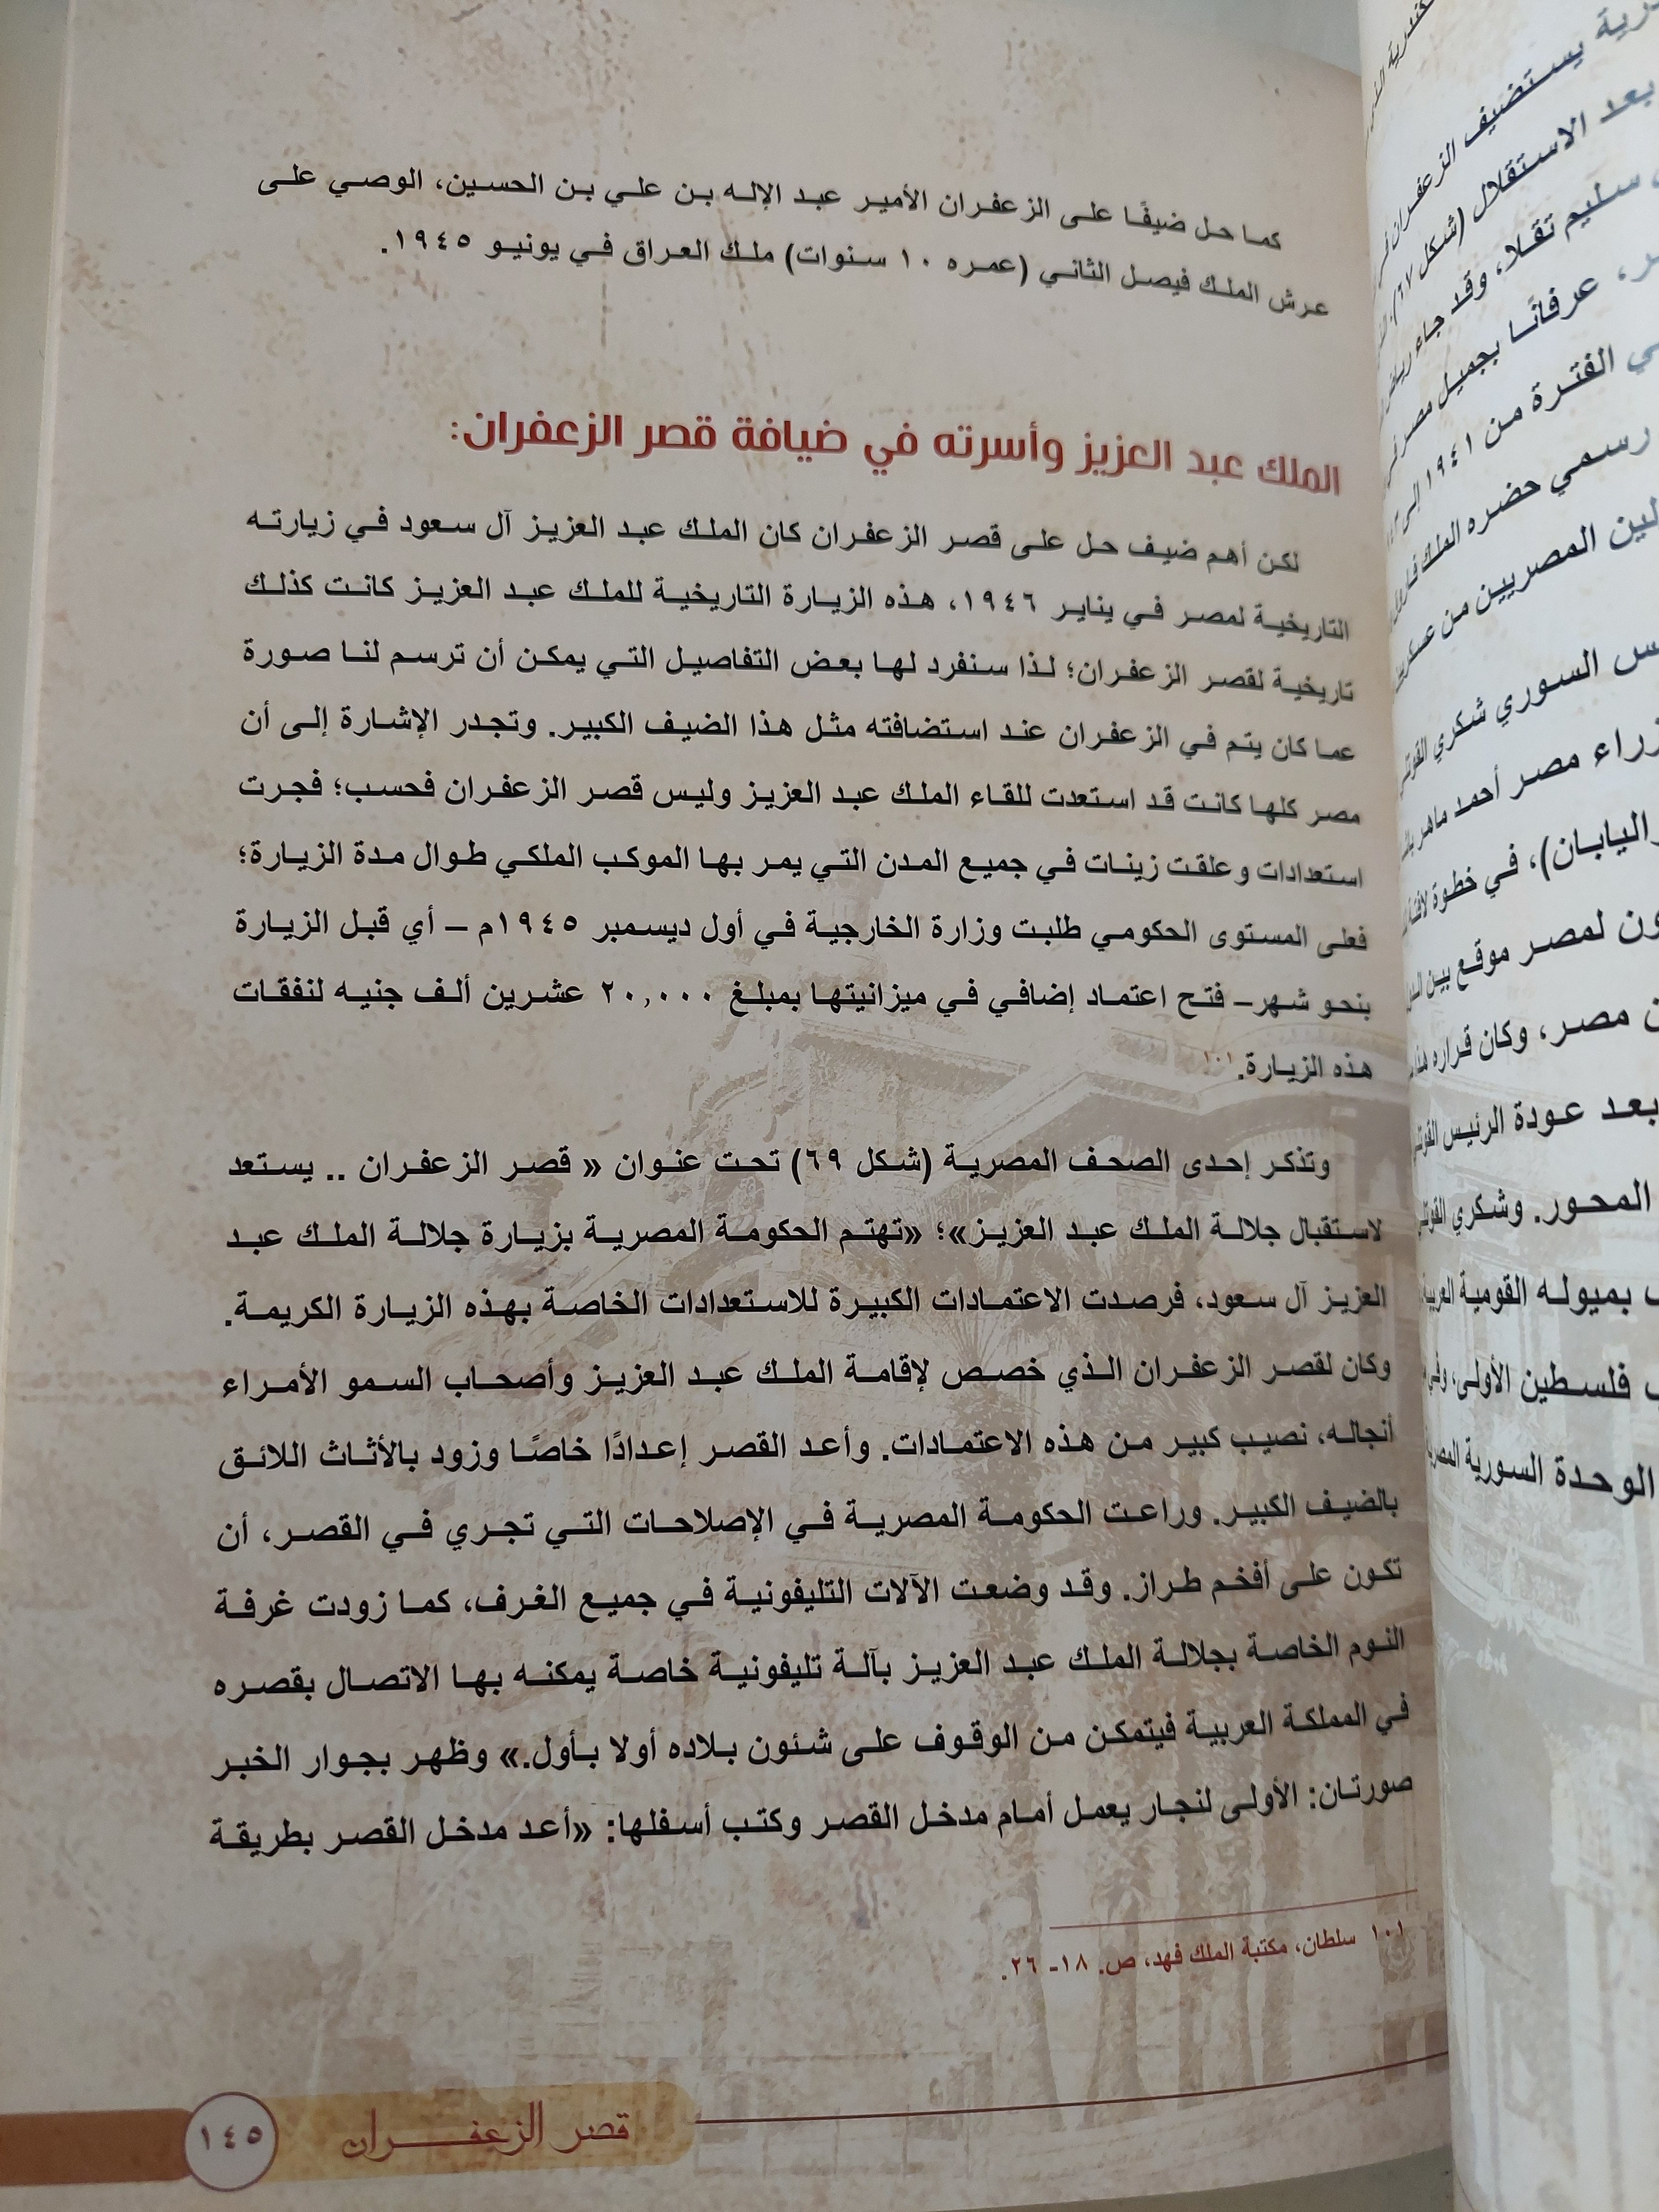 كما حل ضيفًا على الزعفران الأمير عبد الإله بن علي بن الحسين، الوصي على
عرش الملك فيصل الثاني (عمره ١٠ سنوات) ملك العراق في يونيو ١٩٤٥.
الملك عبد العزيز وأسرته في ضيافة قصر الزعفران:
لكن أهم ضيف حل على قصر الزعفران كان الملك عبد العزيز آل سعود في زيارته
التاريخية لمصر في يناير ١٩٤٦، هذه الزيارة التاريخية للملك عبد العزيز كانت كذلك
تاريخية لقصر الزعفران؛ لذا سنفرد لها بعض التفاصيل التي يمكن أن ترسم لنا صورة
عما كان يتم في الزعفران عند استضافته مثل هذا الضيف الكبير. وتجدر الإشارة إلى أن
مصر كلها كانت قد استعدت للقاء الملك عبد العزيز وليس قصر الزعفران فحسب؛ فجرت
استعدادات وعلقت زينات في جميع المدن التي يمر بها الموكب الملكي طوال مدة الزيارة؛
فعلى المستوى الحكومي طلبت وزارة الخارجية في أول ديسمبر ١٩٤٥م – أي قبل الزيارة
بنحو شهر– فتح اعتماد إضافي في ميزانيتها بمبلغ ٢٠,٠٠٠ عشرين ألف جنيه لنفقات
هذه الزيارة.١٠١
وتذكر إحدى الصحف المصرية (شكل ٦٩) تحت عنوان « قصر الزعفران .. يستعد
لاستقبال جلالة الملك عبد العزيز»؛ «تهتم الحكومة المصرية بزيارة جلالة الملك عبد
العزيز آل سعود، فرصدت الاعتمادات الكبيرة للاستعدادات الخاصة بهذه الزيارة الكريمة.
وكان لقصر الزعفران الذي خصص لإقامة الملك عبد العزيز وأصحاب السمو الأمراء
أنجاله، نصيب كبير من هذه الاعتمادات. وأعد القصر إعدادًا خاصًا وزود بالأثاث اللائق
بالضيف الكبير. وراعت الحكومة المصرية في الإصلاحات التي تجري في القصر، أن
تكون على أفخم طراز. وقد وضعت الآلات التليفونية في جميع الغرف، كما زودت غرفة
النوم الخاصة بجلالة الملك عبد العزيز بآلة تليفونية خاصة يمكنه بها الاتصال بقصره
في المملكة العربية فيتمكن من الوقوف على شئون بلاده أولا بأول.» وظهر بجوار الخبر
صورتان: الأولى لنجار يعمل أمام مدخل القصر وكتب أسفلها: «أعد مدخل القصر بطريقة
١٠١ سلطان، مكتبة الملك فهد، ص. ١٨- ٢٦.
قصر الزعفران
١٤٥
يستضيف الزعفران
بعد الاستقلال (شكل ٦٧).
سليم تقلا، وقد جاء
عرفانًا بجميل مصر
الفترة من ١٩٤١ إلى
رسمي حضره الملك
المصريين من
السوري شكري
مصر أحمد ماهر
واليابان)، في خطوة
لمصر موقع بين
مصر، وكان قراره
بعد عودة الرئيس
المحور. وشكري
بميوله القومية العربية
فلسطين الأولى،
الوحدة السورية